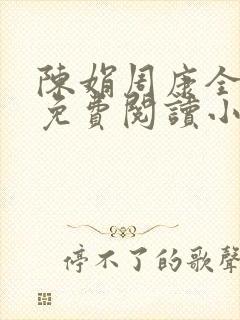 陳娟周康全
免費閱讀小
停不了的歌聲